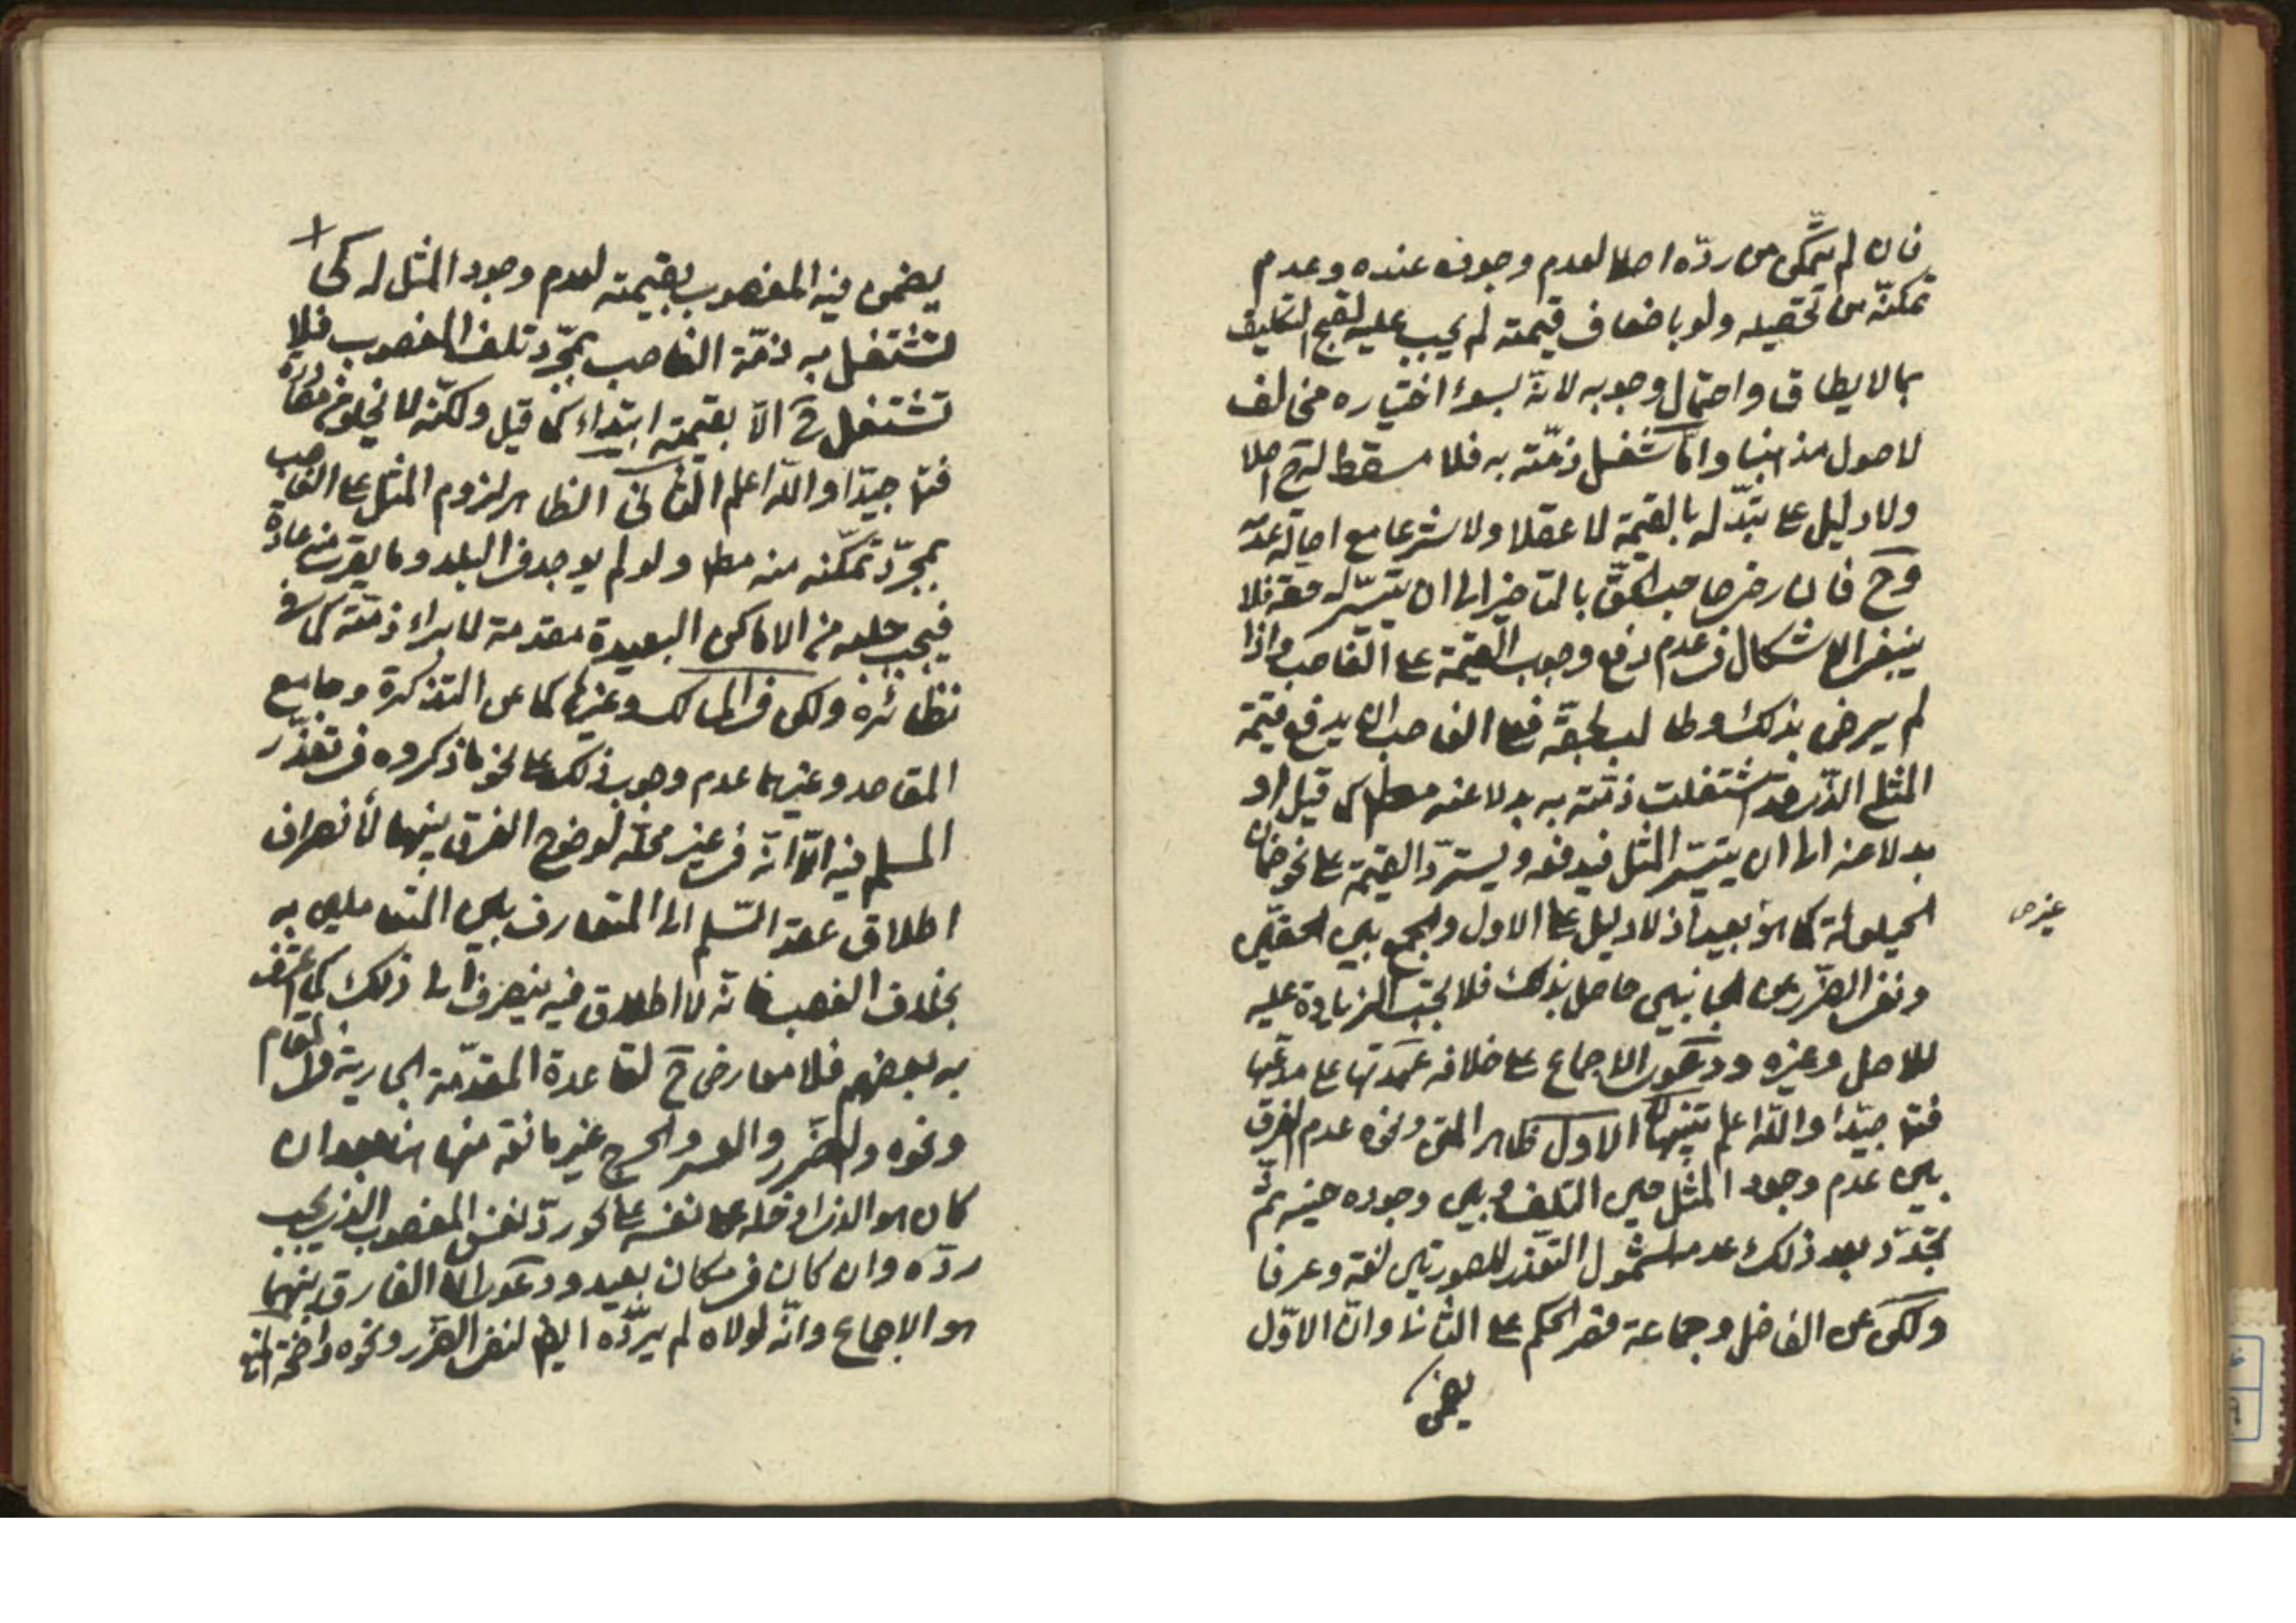 فان لم يتمكن من ردّه اصلا لعدم وجوده عنده وعدم
تمكنه من تحصيله ولو باضعاف قيمته لم يجب عليه لقبح التكليف
بما لا يطاق واحتمال وجوبه لانه بسوء اختياره مخالف
لاصول مذهبنا وامّا شغل ذمّته به فلا مسقط له ح اصلا
ولا دليل على تبدّله بالقيمة لا عقلا ولا شرعا مع اصالة عدمه
وح فان رضى صاحب الحقّ بالتاخير الى ان يتيسّر له حقه فلا
ينبغى الاشكال فى عدم دفع وجوب القيمة على الغاصب واذا
لم يرض بذلك وطالب بحقه فعلى الغاصب ان يدفع قيمة
المثلى الذى قد اشتغلت ذمّته به بدلا عنه مطلقا كما قيل او
بدلا عنه الى ان يتيسّر المثل فيدفعه ويستردّ القيمة على نحو ضمان
الحيلولة كما هو بعيد اذ لا دليل على الاول والجمع بين الحقين
غير
ونفى الضرر من الجانبين حاصل بذلك فلا تجب الزيادة عليه
للاصل وغيره ودعوى الاجماع على خلافه عهدتها على مدعيها
فتأ جيّدا والله اعلم تنبيهات الاول ظاهر المتن ونحوه عدم الفرق
بين عدم وجود المثل حين التلف وبين وجوده حينه ثمّ
تجدّد بعد ذلك عدمه لشمول التعذر للصورتين لغة وعرفا
ولكن عن الفاضل وجماعة قصر الحكم على الثانى وانّ الاوّل
يضمن
يضمن فيه المغصوب بقيمته لعدم وجود المثل له كى
تشتغل به ذمّة الغاصب بمجرّد تلف المغصوب فلا
تشتغل ح الّا بقيمته ابتداء كما قيل ولكنّه لا يخلو من مصادرة
فتأ جيّدا والله اعلم الثانى الظاهر لزوم المثل على الغاصب
بمجرّد تمكّنه منه مطلقا ولو لم يوجد فى البلد وما يقرب منه عادة
فيجب جلبه من الاماكن البعيدة مقدمة لابراء ذمّته كما فى
نظائره ولكن فى المسالك وغيرها كما عن التذكرة وجامع
المقاصد وغيرهما عدم وجوب ذلك على نحو ما ذكروه فى تعذّر
المسلم فيه الّا انّه فى غير محلّه لوضوح الفرق بينهما لانصراف
اطلاق عقد السّلم الى المتعارف بين المتعاملين به
بخلاف الغصب فانّه لا اطلاق فيه ينصرف الى ذلك كما اعترف
به بعضهم فلا معارض ح لقاعدة المقدّمة الجارية فى المقام
ونحوه والضّرر والعسر والحرج غير مانعة منها هنا بعد ان
كان هو الذى ادخله على نفسه على نحو ردّ نفس المغصوب الذى يجب
ردّه وان كان فى مكان بعيد ودعوى انّ الفارق بينهما
هو الاجماع وانّه لولاه لم يردّه ايضا لنفى الضّرر ونحوه واضحة المنع